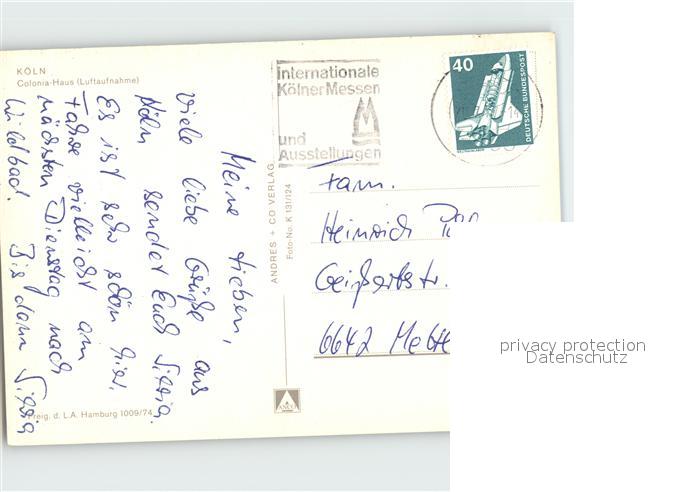 KÖLN
Colonia-Haus (Luftaufnahme)
Meine Lieben,
viele liebe Grüße aus
Köln sendet Euch Silvia.
Es ist sehr schön hier.
Fahre vielleicht am
nächsten Dienstag nach
Wildbad. Bis dann Silvia
Freig. d. L.A. Hamburg 1009/74
ANDRES + CO VERLAG
Foto-No. K 131/124
ANCO
Internationale
Kölner Messen
und
Ausstellungen
40
DEUTSCHE BUNDESPOST
Fam.
Heinrich
6642
privacy protection
Datenschutz